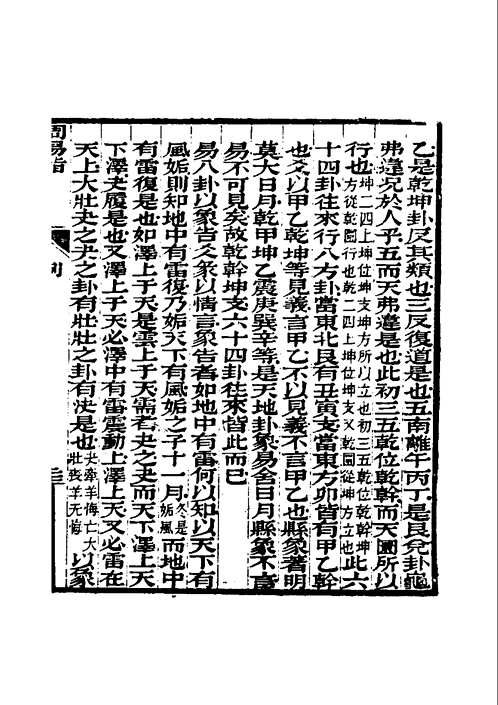 乙是乾坤卦反其類也三反復道是也五南離午丙丁是艮兌卦龜
弗違況於人乎五而天弗違是也此初三五乾位乾幹而天圜所以
行也坤二四上坤位坤支坤方所以立也初三五乾位乾幹坤方從乾圜行也乾二四上坤位坤支又乾圜從坤方立也此六
十四卦往來行八方卦當東北艮有丑寅支當東方卯皆有甲乙幹
也爻以甲乙乾坤等見義言甲乙不以見義不言甲乙也縣象著明
莫大日月乾甲坤乙震庚巽辛等是天地卦象易舍日月縣象不言
易不可見矣故乾幹坤支六十四卦往來皆此而已
易八卦以象告爻象以情言象告者如地中有雷何以知以天下有
風姤則知地中有雷復乃姤天下有風姤之子十一月冬是姤風而地中
有雷復是也如澤上于天是雲上于天需者夬之夬而天下澤上天
下澤夬履是也又澤上于天必澤中有雷震動上澤上天又必雷在
天上大壯夬之夬之卦有壯壯之卦有決是也夬牽羊悔亡大壯喪羊无悔以象
周易指